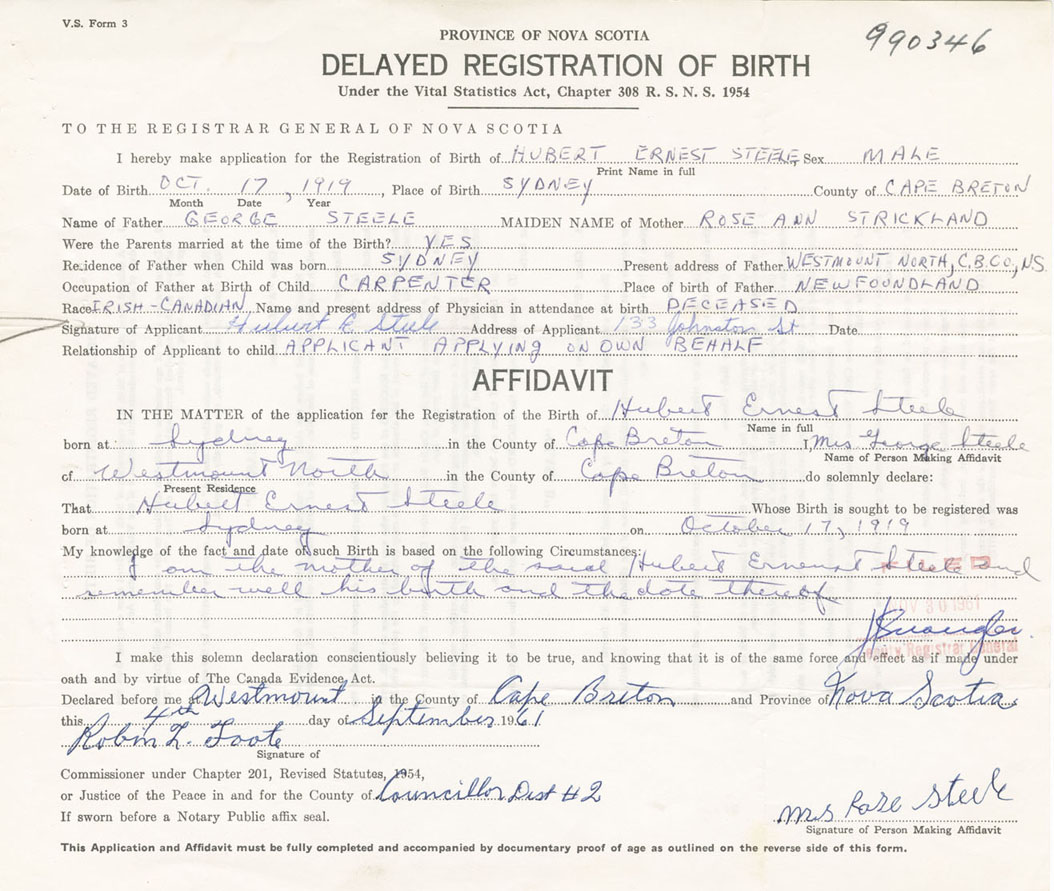 V.S. Form 3
990346
PROVINCE OF NOVA SCOTIA
DELAYED REGISTRATION OF BIRTH
Under the Vital Statistics Act, Chapter 308 R. S. N. S. 1954
TO THE REGISTRAR GENERAL OF NOVA SCOTIA
I hereby make application for the Registration of Birth of HUBERT ERNEST STEELE Sex MALE
Print Name in full
Date of Birth OCT. 17, 1919, Place of Birth SYDNEY County of CAPE BRETON
Month Date Year
Name of Father GEORGE STEELE MAIDEN NAME of Mother ROSE ANN STRICKLAND
Were the Parents married at the time of the Birth? YES
Residence of Father when Child was born SYDNEY Present address of Father WESTMOUNT NORTH, C.B.CO., N.S.
Occupation of Father at Birth of Child CARPENTER Place of birth of Father NEWFOUNDLAND
Race IRISH-CANADIAN Name and present address of Physician in attendance at birth DECEASED
Signature of Applicant Hubert E Steele Address of Applicant 133 Johnston St Date
Relationship of Applicant to child APPLICANT APPLYING ON OWN BEHALF
AFFIDAVIT
IN THE MATTER of the application for the Registration of the Birth of Hubert Ernest Steele
Name in full
born at Sydney in the County of Cape Breton I, Mrs George Steele
Name of Person Making Affidavit
of Westmount North in the County of Cape Breton do solemnly declare:
Present Residence
That Hubert Ernest Steele Whose Birth is sought to be registered was
born at Sydney on October 17, 1919
My knowledge of the fact and date of such Birth is based on the following Circumstances:
I am the mother of the said Hubert Ernest Steele and
remember well his birth and the date thereof
NOV 30 1961
Deputy Registrar General
I make this solemn declaration conscientiously believing it to be true, and knowing that it is of the same force and effect as if made under
oath and by virtue of The Canada Evidence Act.
Declared before me Westmount in the County of Cape Breton and Province of Nova Scotia
this 4th day of September 1961
Robin L. Foote
Signature of
Commissioner under Chapter 201, Revised Statutes, 1954,
or Justice of the Peace in and for the County of Councillor Dist #2
If sworn before a Notary Public affix seal.
Mrs Rose Steele
Signature of Person Making Affidavit
This Application and Affidavit must be fully completed and accompanied by documentary proof of age as outlined on the reverse side of this form.